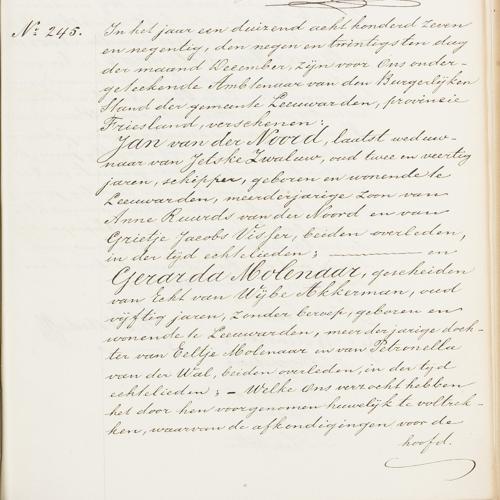 No 245. In het jaar een duizend acht honderd zeven
en negentig, den negen en twintigsten dag
der maand December, zijn voor ons onder-
geteekende Ambtenaar van den Burgerlijken
Stand der gemeente Leeuwarden, provincie
Friesland, verschenen:
Jan van der Noord, laatst weduw-
naar van Jelske Zwaluw, oud twee en veertig
jaren, schipper, geboren en wonende te
Leeuwarden, meerderjarige zoon van
Anne Ruurds van der Noord en van
Grietje Jacobs Visser, beiden overleden,
in der tijd echtelieden; ——— en
Gerarda Molenaar, gescheiden
van Echt van Wijbe Akkerman, oud
vijftig jaren, zonder beroep, geboren en
wonende te Leeuwarden, meerderjarige doch-
ter van Eeltje Molenaar en van Petronella
van der Wal, beiden overleden, in der tijd
echtelieden; – Welke ons verzocht hebben
het door hen voorgenomen huwelijk te voltrek-
ken, waarvan de afkondigingen voor de
hoofd.